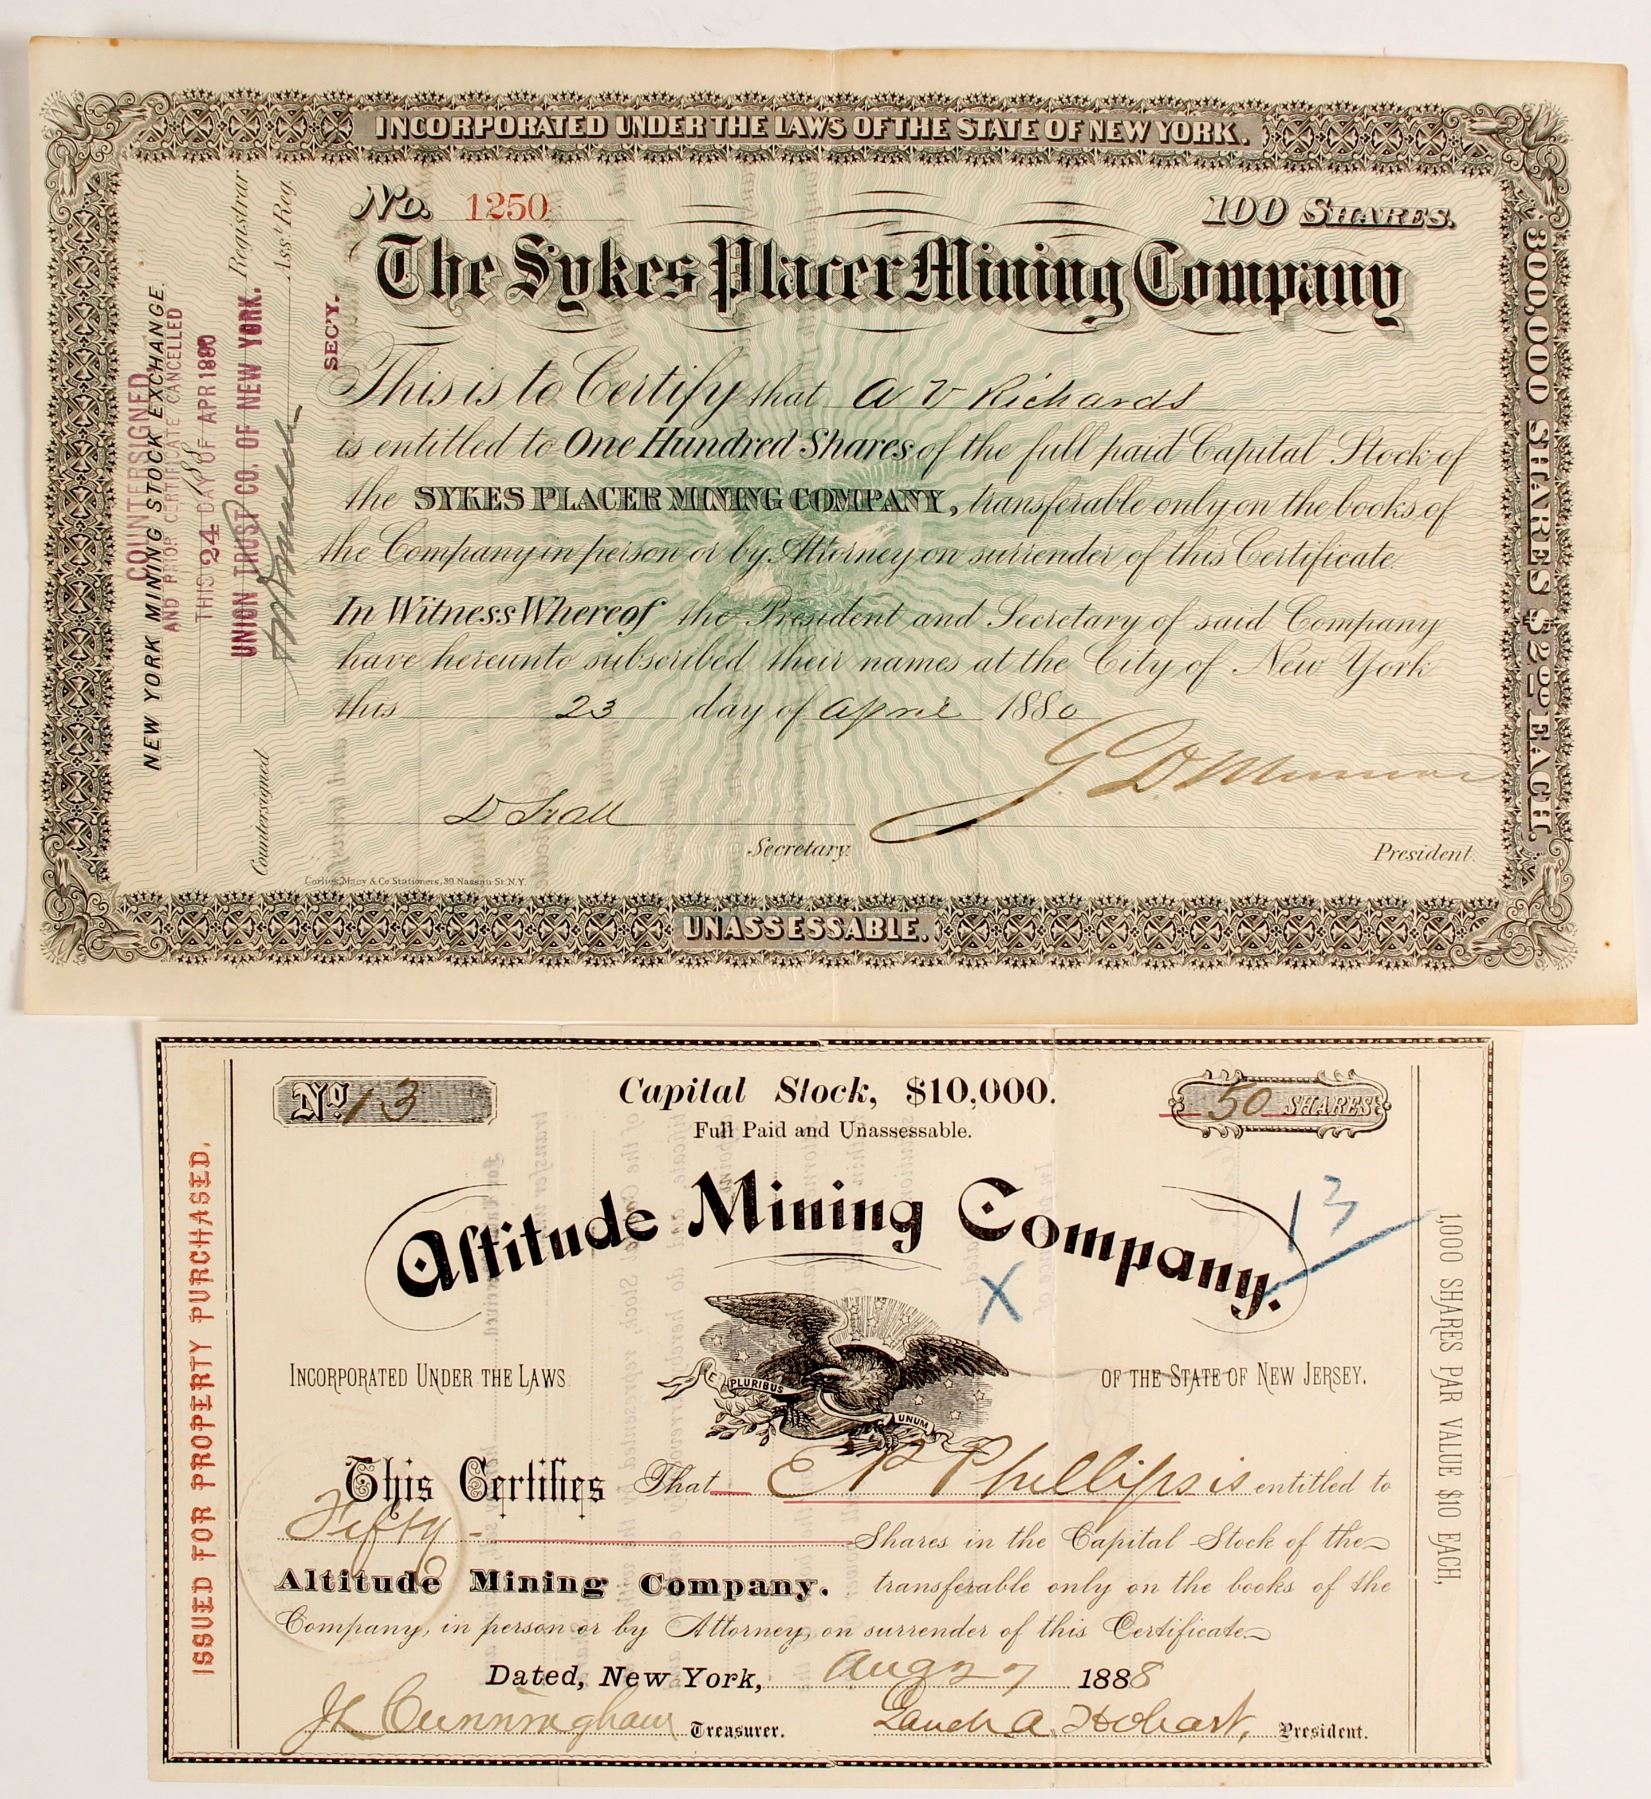 INCORPORATED UNDER THE LAWS OF THE STATE OF NEW YORK.
No. 1250
100 SHARES.
The Sykes Placer Mining Company
This is to Certify that A V Richards
is entitled to One Hundred Shares of the full paid Capital Stock of
the SYKES PLACER MINING COMPANY, transferable only on the books of
the Company in person or by Attorney on surrender of this Certificate.
In Witness Whereof the President and Secretary of said Company
have hereunto subscribed their names at the City of New York
this 23 day of April 1880
Secretary.
President.
Corlies, Macy & Co Stationers, 39 Nassau St. N.Y.
UNASSESSABLE.
300,000 SHARES $2.00 EACH.
COUNTERSIGNED
NEW YORK MINING STOCK EXCHANGE.
AND PRIOR CERTIFICATE CANCELLED
THIS 24 DAY OF APR 1880
UNION TRUST CO. OF NEW YORK.
Countersigned
Registrar
Ass't Reg.
SEC'Y.
No. 13
Capital Stock, $10,000.
50 SHARES
Full Paid and Unassessable.
Altitude Mining Company.
13
X
INCORPORATED UNDER THE LAWS
OF THE STATE OF NEW JERSEY.
E PLURIBUS UNUM
This Certifies That E P Phillips is entitled to
Fifty Shares in the Capital Stock of the
Altitude Mining Company. transferable only on the books of the
Company, in person or by Attorney, on surrender of this Certificate
Dated, New York, Aug 27 1888
J L Cunningham Treasurer.
A. Hobart, President.
ISSUED FOR PROPERTY PURCHASED.
1,000 SHARES PAR VALUE $10 EACH,